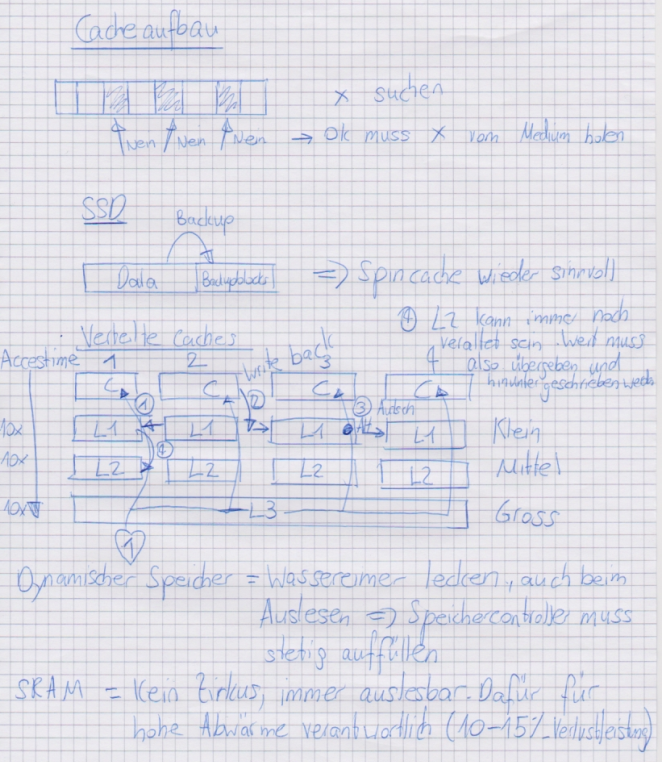 Cacheaufbau
x suchen
Nein Nein Nein → Ok muss x vom Medium holen
SSD
Backup
Data Backupblocks ⇒ Spincache wieder sinnvoll
Verteilte Caches
④ L2 kann immer noch
veraltet sein. Wert muss
also übergeben und
hinunter geschrieben werden
Accestime 1 2 3 4
Write back
C C C C
① ② ③ Autsch
10x L1 L1 L1 Alt L1 Klein
④
10x L2 L2 L2 L2 Mittel
10x L3 Gross
1
Dynamischer Speicher = Wassereimer lecken, auch beim
Auslesen ⇒ Speichercontroller muss
stetig auffüllen
SRAM = Kein Zirkus, immer auslesbar. Dafür für
hohe Abwärme verantwortlich (10-15% Verlustleistung)